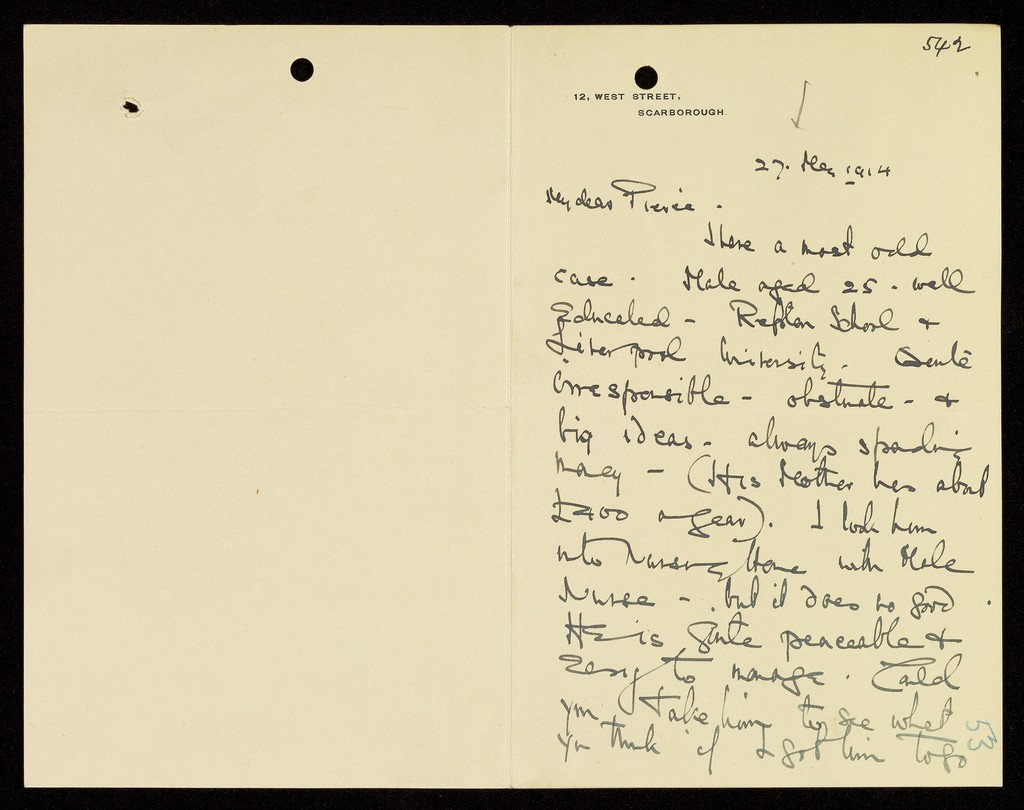 542
12, WEST STREET,
SCARBOROUGH.
27. May 1914
My dear Pierce.
I have a most odd
case. Male aged 25 - well
Educated - Repton School +
Liverpool University. Quite
irresponsible - obstinate - +
big ideas - always spending
money - (His Mother has about
£400 a year). I took him
into Nursing Home with Male
Nurse - but it does no good.
He is quite peaceable +
Easy to manage. Could
you take him to see what
you think if I got him to go
53